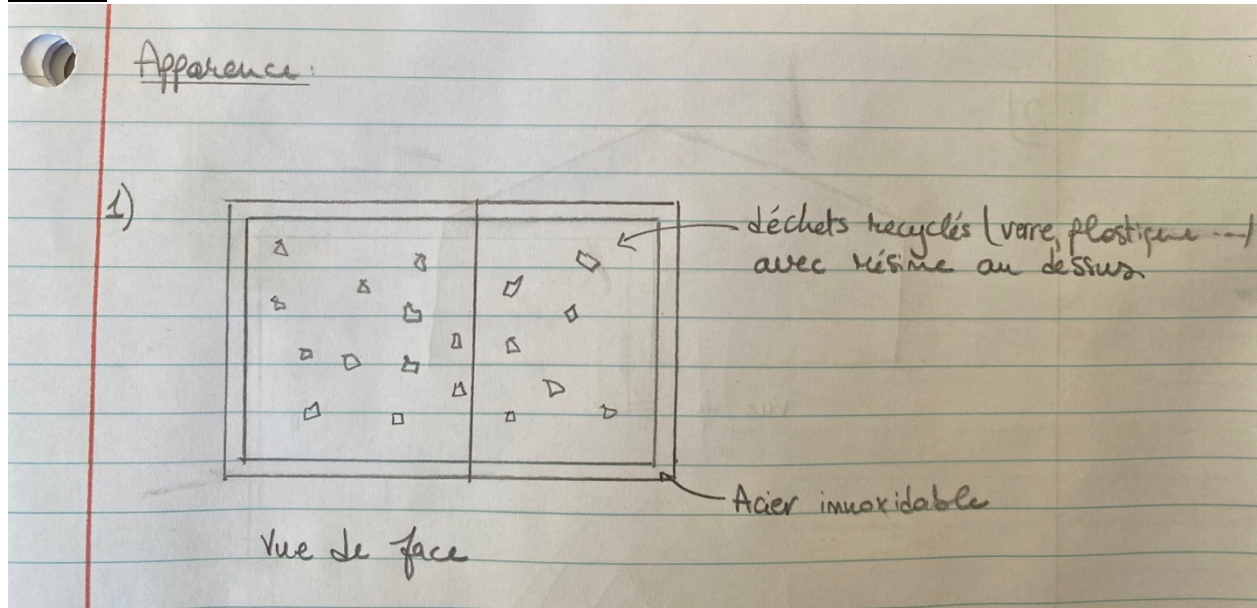 Apparence:
1)
déchets recyclés (verre, plastique ...)
avec résine au dessus
Acier innoxidable
Vue de face